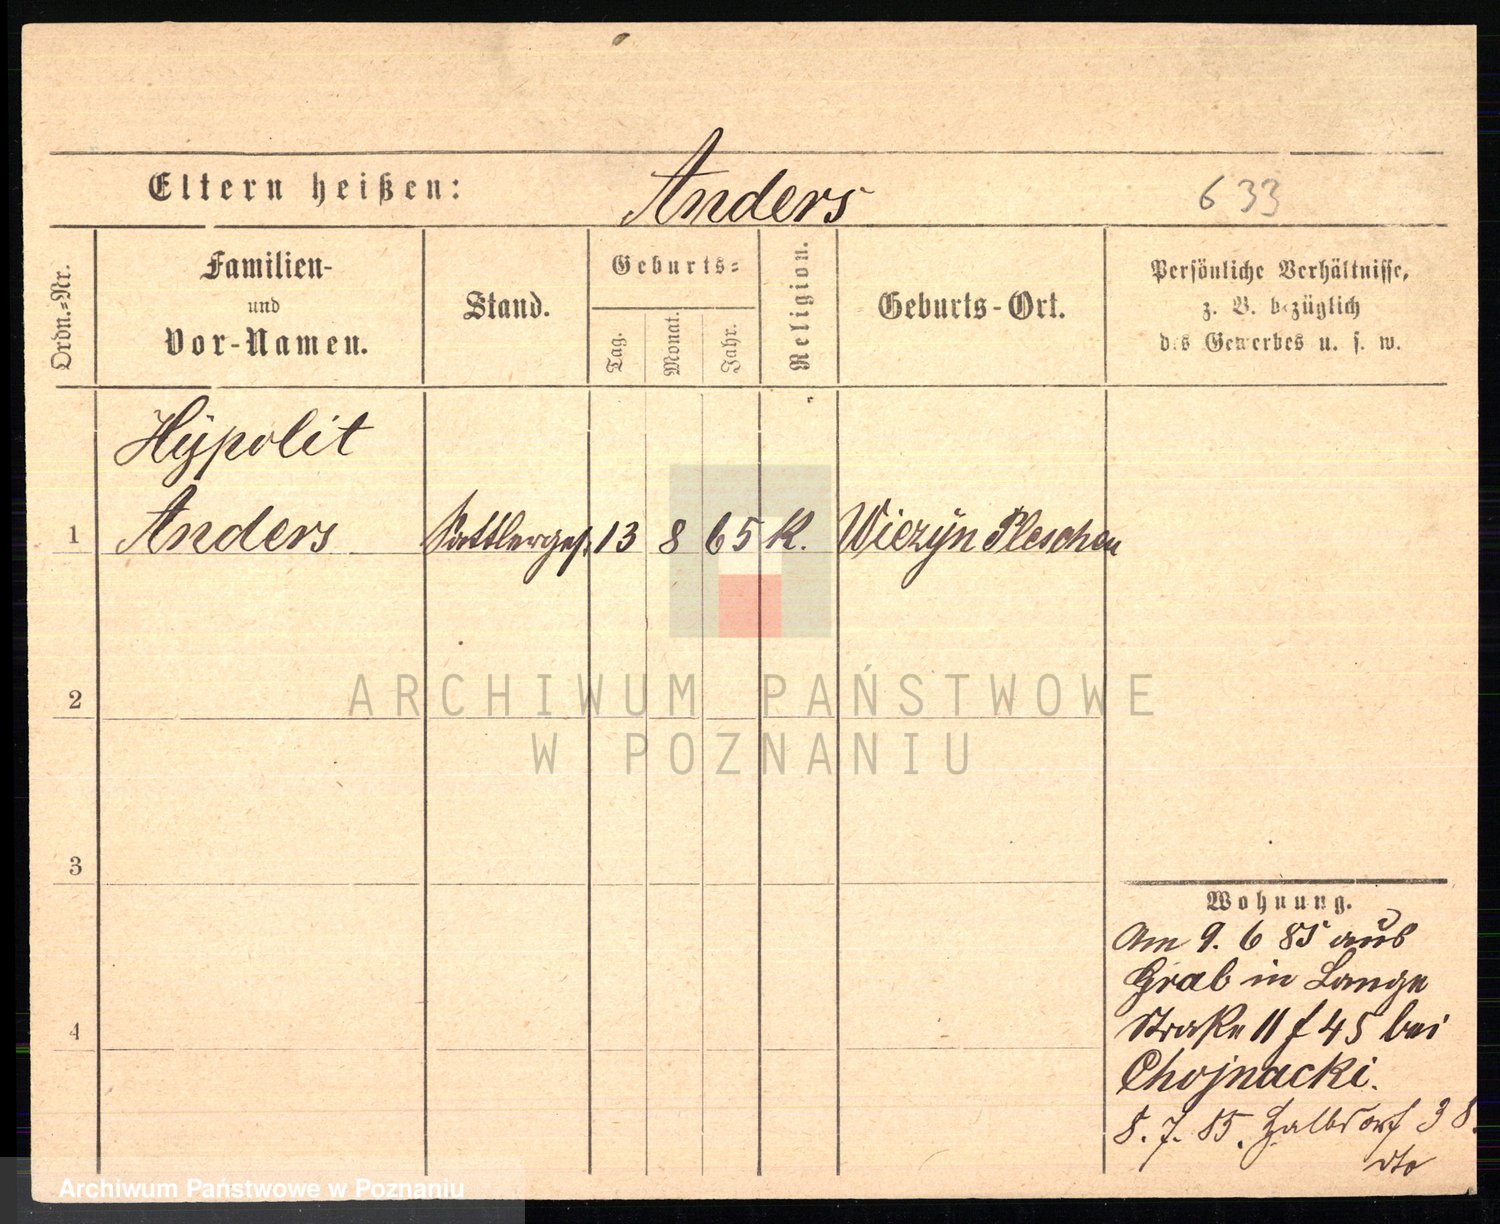 Eltern heißen: Anders 633
Ordn.-Nr.
Familien-
und
Vor-Namen.
Stand.
Geburts-
Tag.
Monat.
Jahr.
Religion.
Geburts-Ort.
Persönliche Verhältnisse,
z. B. bezüglich
des Gewerbes u. s. w.
Hÿpolit
1 Anders Sattlerges. 13 8 65 K. Wiezÿn Pleschen
ARCHIWUM PAŃSTWOWE
W POZNANIU
2
3
4
Wohnung.
Am 9. 6 85 aus
Grab in Lange
Straße 11 f 45 bei
Chojnacki.
8. 7. 85. Halbdorf 38.
dto
Archiwum Państwowe w Poznaniu